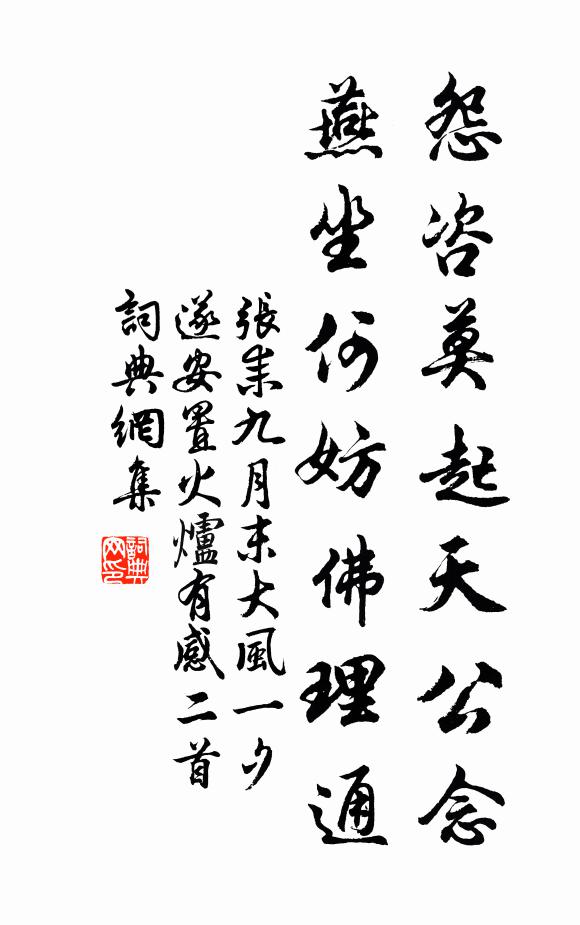 怨咨莫起天公念
燕坐何妨佛理通
張耒九月末大風一夕
遂安置火爐有感二首
詞典網集
詞典
网印